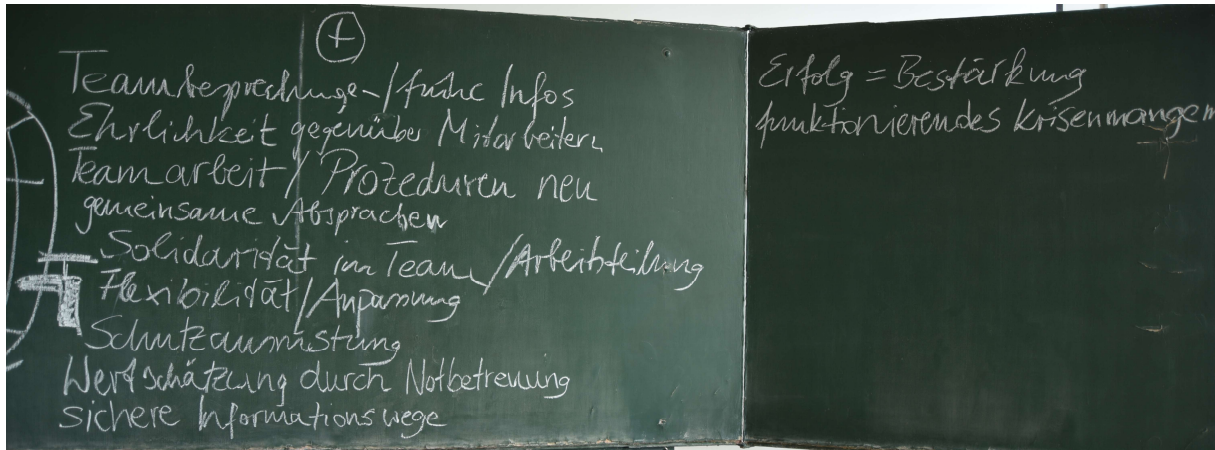 +
Teambesprechunge-/frühe Infos
Ehrlichkeit gegenüber Mitarbeitern
Teamarbeit/Prozeduren neu
gemeinsame Absprachen
Solidarität im Team/Arbeitsteilung
Flexibilität/Anpassung
Schutzausrüstung
Wertschätzung durch Notbetreuung
sichere Informationswege
Erfolg = Bestärkung
funktionierendes Krisenmangem